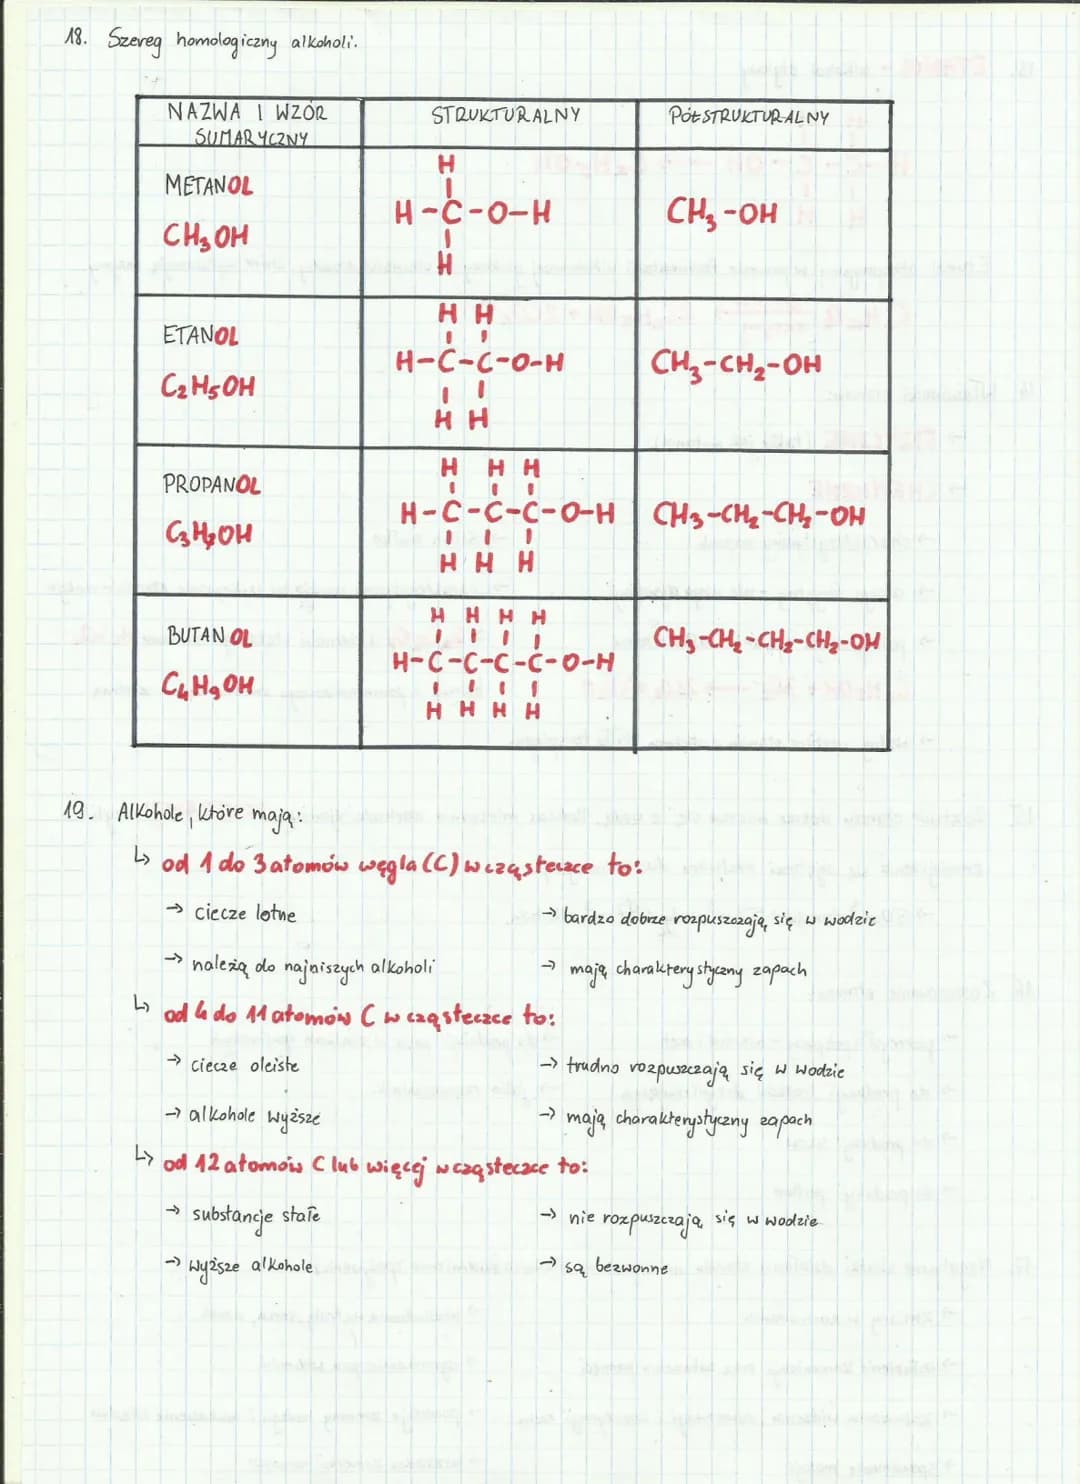 18. Szereg homologiczny alkoholi.
NAZWA I WZÓR SUMARYCZNY
STRUKTURALNY
PÓŁSTRUKTURALNY
METANOL
CH₃OH
H
H-C-O-H
H
CH₃-OH
ETANOL
C₂H₅OH
H H
H-C-C-O-H
H H
CH₃-CH₂-OH
PROPANOL
C₃H₇OH
H H H
H-C-C-C-O-H
H H H
CH₃-CH₂-CH₂-OH
BUTANOL
C₄H₉OH
H H H H
H-C-C-C-C-O-H
H H H H
CH₃-CH₂-CH₂-CH₂-OH
19. Alkohole, które mają:
↳ od 1 do 3 atomów węgla (C) w cząsteczce to:
→ ciecze lotne → bardzo dobrze rozpuszczają się w wodzie
→ należą do najniszych alkoholi → mają charakterystyczny zapach
↳ od 4 do 11 atomów C w cząsteczce to:
→ ciecze oleiste → trudno rozpuszczają się w wodzie
→ alkohole wyższe → mają charakterystyczny zapach
↳ od 12 atomów C lub więcej w cząsteczce to:
→ substancje stałe → nie rozpuszczają się w wodzie
→ wyższe alkohole → są bezwonne